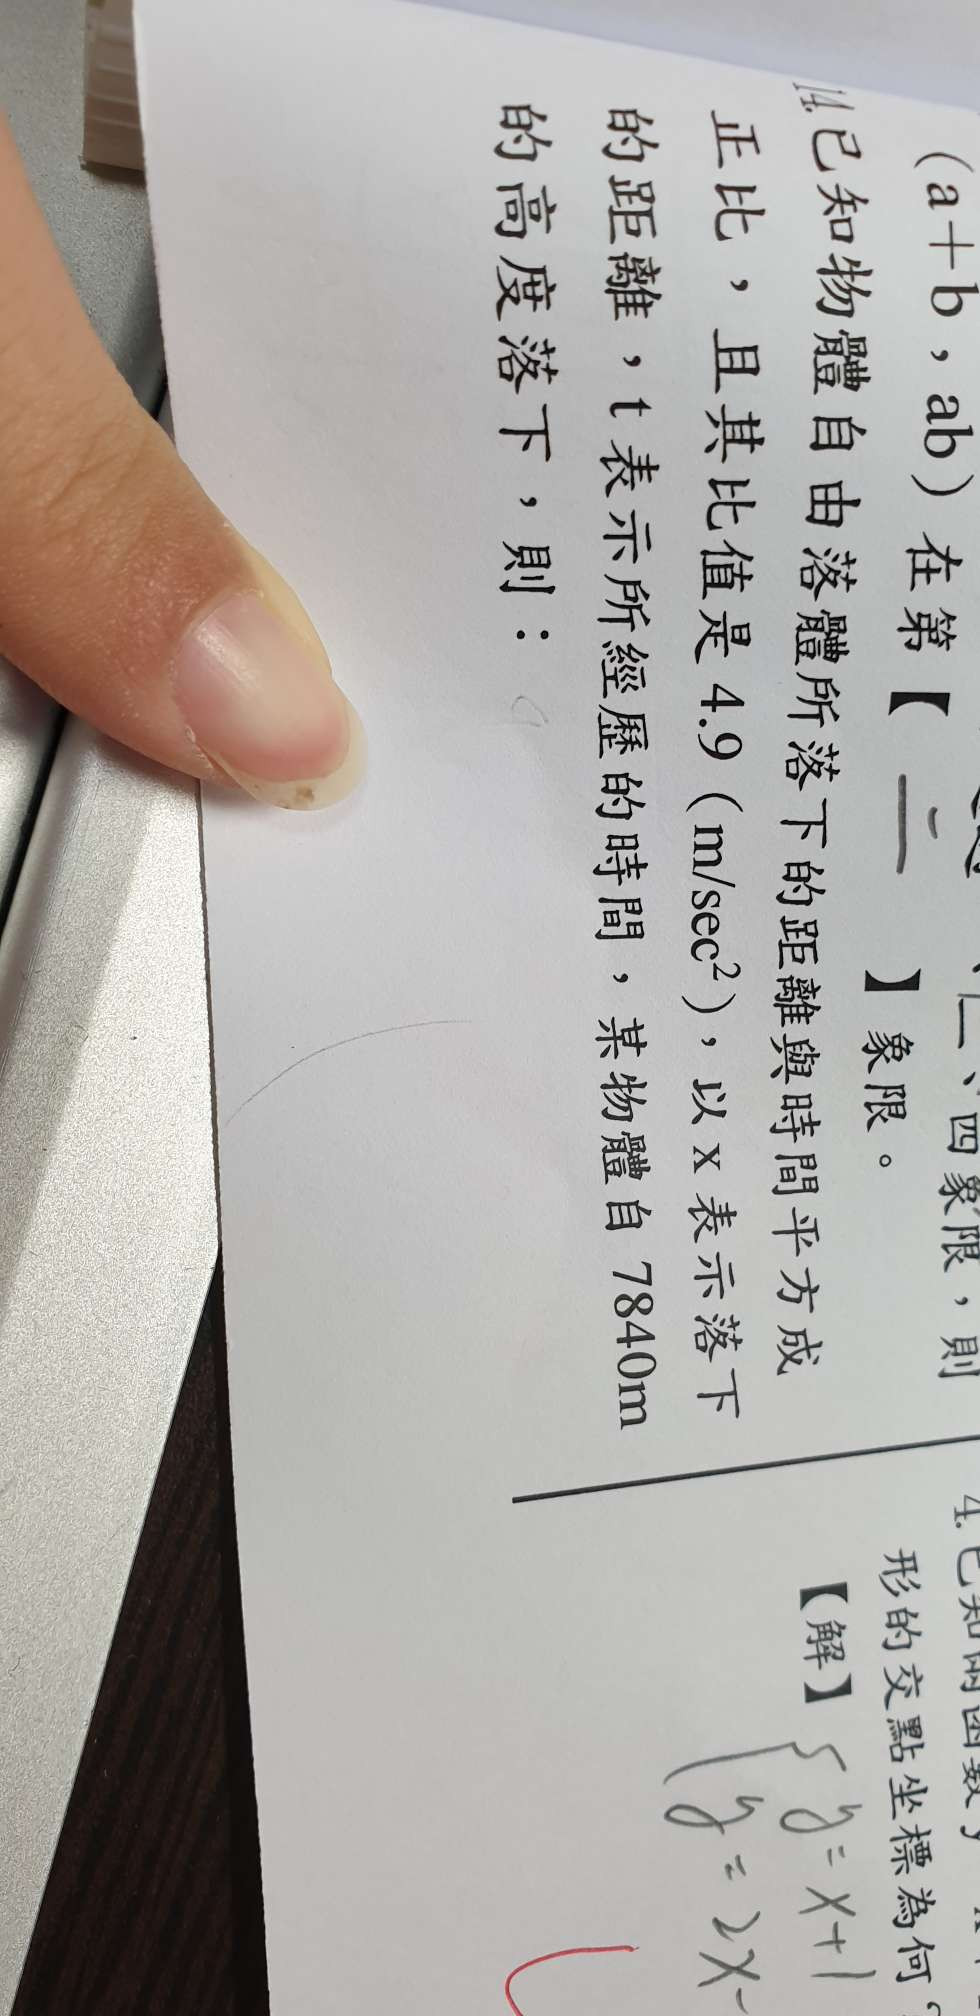 (a+b,ab)在第【 二 】象限。
、四象限,則
14.已知物體自由落體所落下的距離與時間平方成
正比,且其比值是 4.9(m/sec²),以 x 表示落下
的距離,t 表示所經歷的時間,某物體自 7840m
的高度落下,則:
4.已知兩函數y
形的交點坐標為何?
【解】{ y = x+1
y = 2x-